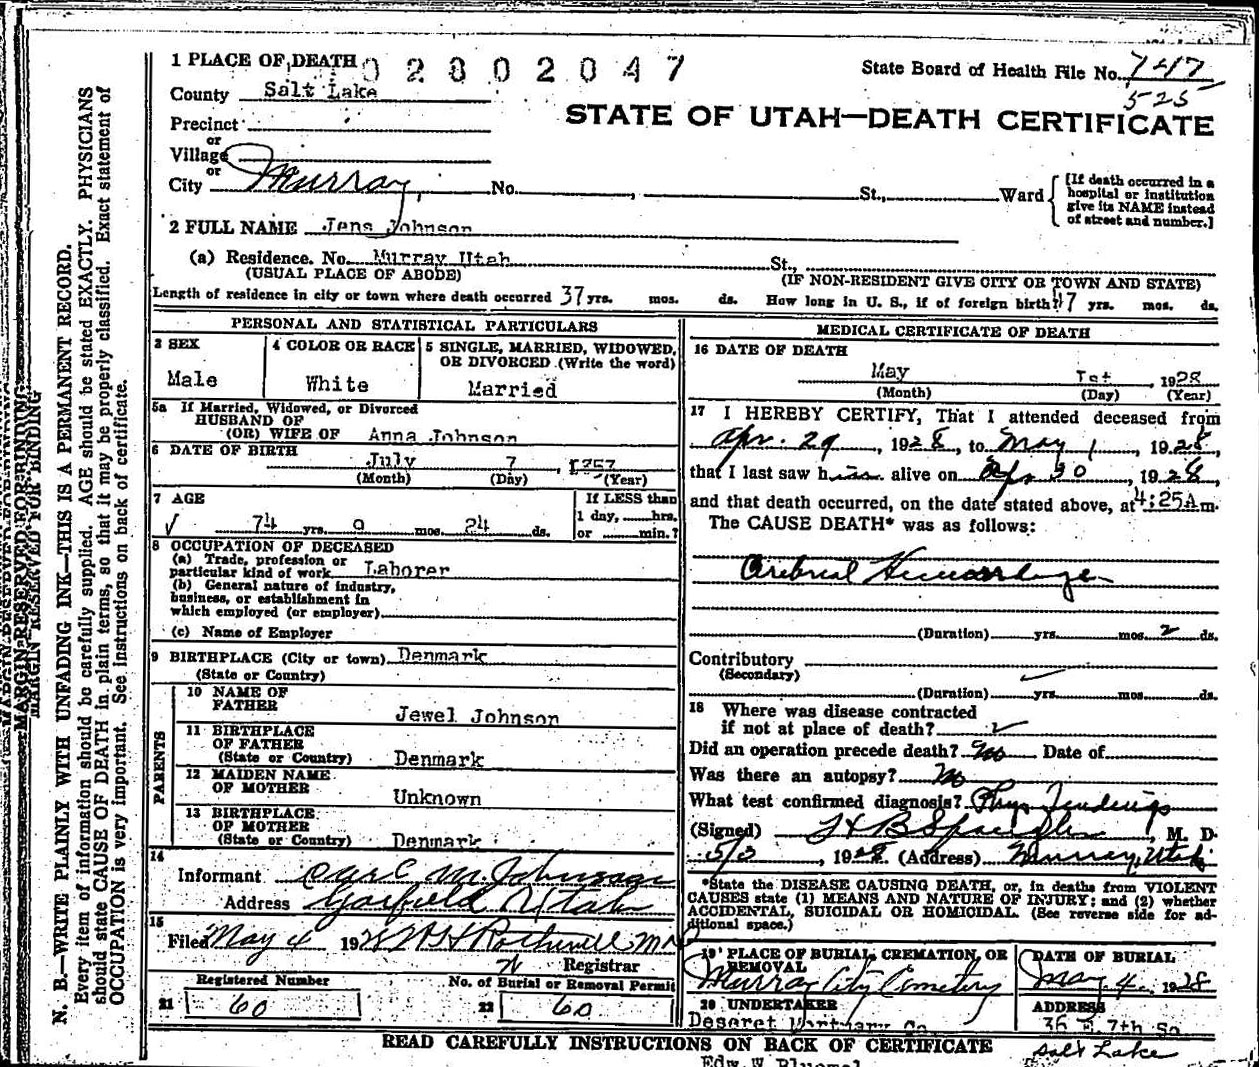 1 PLACE OF DEATH 02802047
State Board of Health File No. 747
525
County Salt Lake
STATE OF UTAH—DEATH CERTIFICATE
Precinct
or
Village
or
City Murray, No. , St., Ward
[If death occurred in a hospital or institution give its NAME instead of street and number.]
2 FULL NAME Jens Johnson
(a) Residence. No. Murray Utah St.,
(USUAL PLACE OF ABODE) (IF NON-RESIDENT GIVE CITY OR TOWN AND STATE)
Length of residence in city or town where death occurred 37 yrs. mos. ds. How long in U. S., if of foreign birth? 47 yrs. mos. ds.
PERSONAL AND STATISTICAL PARTICULARS
3 SEX
Male
4 COLOR OR RACE
White
5 SINGLE, MARRIED, WIDOWED, OR DIVORCED (Write the word)
Married
5a If Married, Widowed, or Divorced
HUSBAND OF
(OR) WIFE OF Anna Johnson
6 DATE OF BIRTH July 7,
(Month) (Day) (Year)
7 AGE
74 yrs. 9 mos. 24 ds.
If LESS than
1 day, hrs.
or min.?
8 OCCUPATION OF DECEASED
(a) Trade, profession or
particular kind of work Laborer
(b) General nature of industry,
business, or establishment in
which employed (or employer)
(c) Name of Employer
9 BIRTHPLACE (City or town) Denmark
(State or Country)
PARENTS
10 NAME OF
FATHER
Jewel Johnson
11 BIRTHPLACE
OF FATHER
(State or Country) Denmark
12 MAIDEN NAME
OF MOTHER
Unknown
13 BIRTHPLACE
OF MOTHER
(State or Country) Denmark
14
Informant M. Johnson
Address Garfield Utah
15
Filed May 4 1928 Rothwell MD
Registrar
Registered Number
21 60
No. of Burial or Removal Permit
22 60
MEDICAL CERTIFICATE OF DEATH
16 DATE OF DEATH
May Ist, 1928
(Month) (Day) (Year)
17 I HEREBY CERTIFY, That I attended deceased from
Apr. 29, 1928, to May 1, 1928,
that I last saw him alive on Apr 30, 1928
and that death occurred, on the date stated above, at 4:25A m.
The CAUSE DEATH* was as follows:
Cerebral Hemorrhage
(Duration) yrs. mos. 2 ds.
Contributory
(Secondary)
(Duration) yrs. mos. ds.
18 Where was disease contracted
if not at place of death?
Did an operation precede death? No Date of
Was there an autopsy? No
What test confirmed diagnosis? Phys Findings
(Signed) M. D.
1928 (Address) Murray, Utah
*State the DISEASE CAUSING DEATH, or, in deaths from VIOLENT
CAUSES state (1) MEANS AND NATURE OF INJURY; and (2) whether
ACCIDENTAL, SUICIDAL OR HOMICIDAL. (See reverse side for ad-
ditional space.)
19 PLACE OF BURIAL, CREMATION, OR
REMOVAL
Murray City Cemetery
DATE OF BURIAL
May 4, 1928
20 UNDERTAKER
Deseret Mortuary Co
ADDRESS
36 E. 7th So
Salt Lake
READ CAREFULLY INSTRUCTIONS ON BACK OF CERTIFICATE
Edw. W.
MARGIN RESERVED FOR BINDING
N. B.—WRITE PLAINLY WITH UNFADING INK—THIS IS A PERMANENT RECORD.
Every item of information should be carefully supplied. AGE should be stated EXACTLY. PHYSICIANS
should state CAUSE OF DEATH in plain terms, so that it may be properly classified. Exact statement of
OCCUPATION is very important. See instructions on back of certificate.